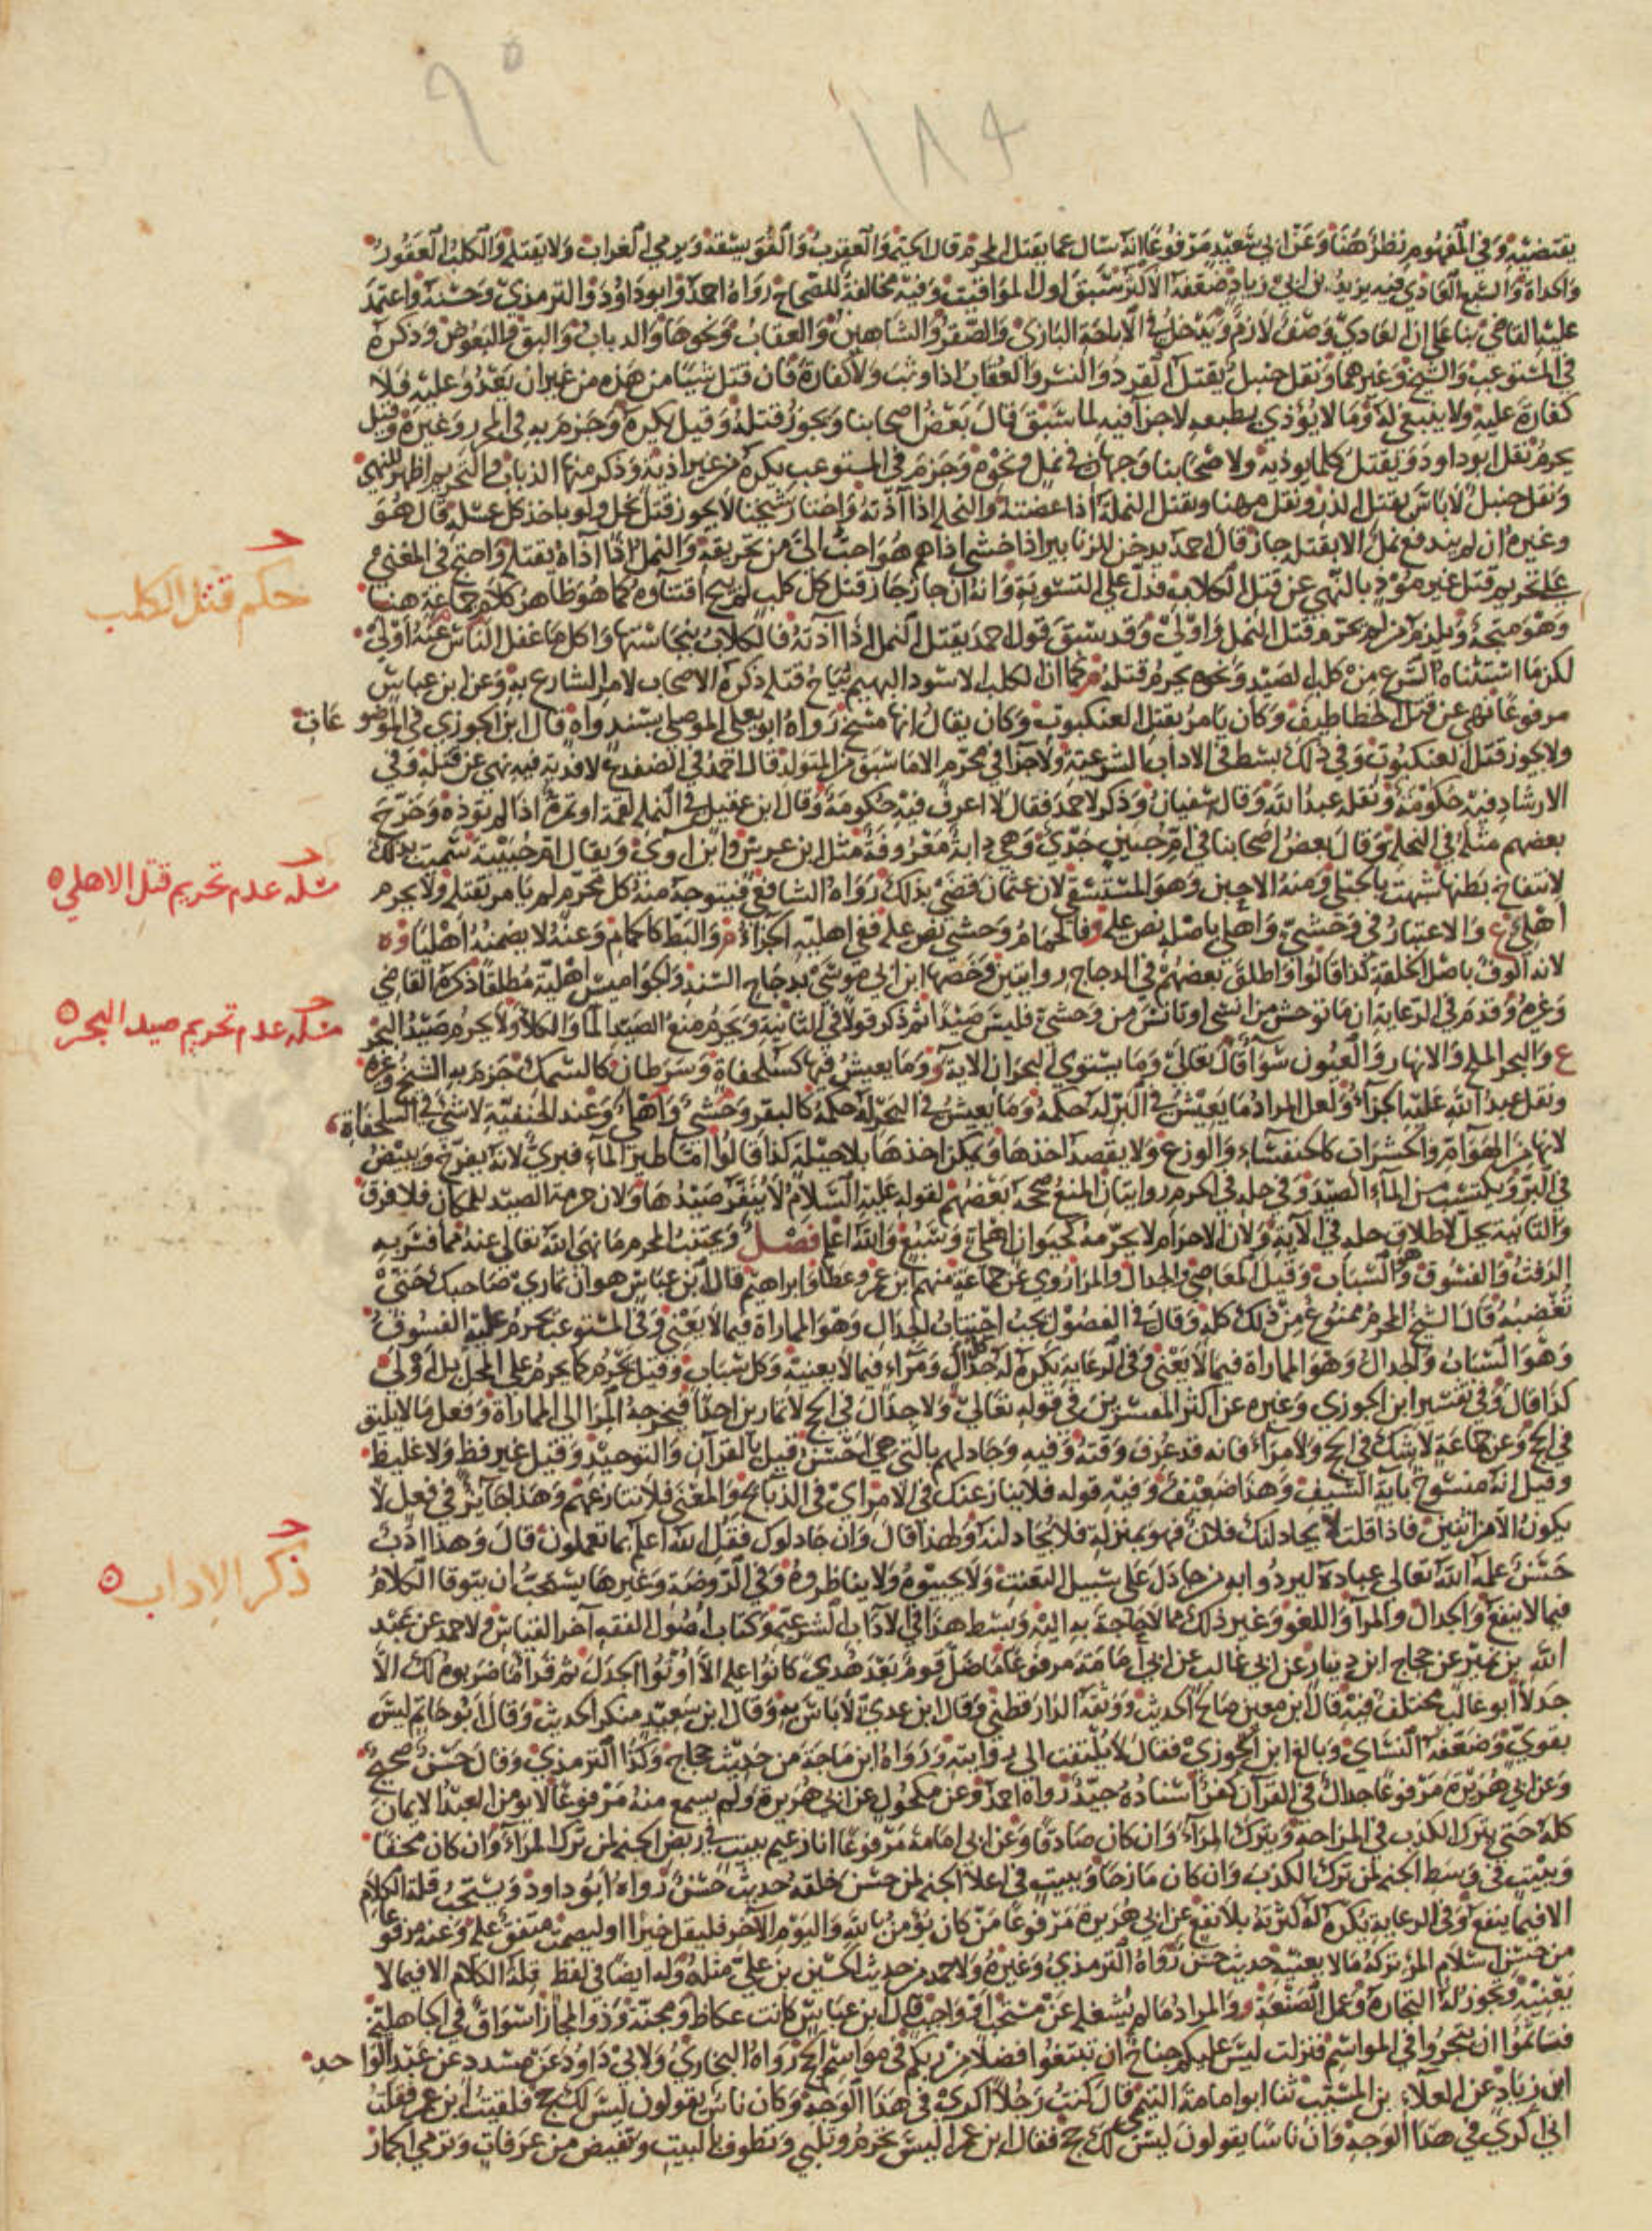 ٩٥
١٨٤
يقتضيه وفي المفهوم نظر هنا وعن ابي سعيد مرفوعا انه سأل عما يقتل المحرم قال الحية والعقرب والفويسقة ويرمي الغراب ولا يقتله والكلب العقور
والحدأة والسبع العادي فيه يزيد بن ابي زياد ضعفه الاكثر سبق اول المواقيت وفيه مخالفة للصحاح رواه احمد وابو داود والترمذي وحسنه واعتمد
عليه القاضي بنا على ان العادي وصف لازم ويدخل في الاباحة البازي والصقر والشاهين والعقاب ونحوها والذباب والبق والبعوض وذكره
في المستوعب والشيخ وغيرهما ونقل حنبل يقتل القرد والنسر والعقاب اذا وثب ولا كفارة فان قتل شيئا من هذه من غير ان يعدو عليه فلا
كفارة عليه ولا ينبغي له وما لا يؤذي بطبعه لا جزا فيه لما سبق قال بعض اصحابنا ويجوز قتله وقيل يكره وجزم به في المحرر وغيره وقيل
يحرم نقل ابو داود ويقتل كلما يوذيه ولاصحابنا وجهان في نمل ونحوه وجزم في المستوعب يكره من غير اذية وذكر منها الذباب والتحريم اظهر للنهي
ونقل حنبل لا باس بقتل الذر ونقل مهنا ويقتل النملة اذا عضته والنحلة اذا آذته واختار شيخنا لا يجوز قتل نحل ولو باخذ كل عسله قال هو
وغيره ان لم يندفع نمل الا بقتله جاز قال احمد يدخن للزنابير اذا خشي اذاهم هو احب الي من تحريقه والنمل اذا آذاه يقتله واحتج في المغني
على تحريم قتل غير موذ بالنهي عن قتل الكلاب فدل على التسوية وانه ان جاز جاز قتل كل كلب لم يبح اقتناوه كما هو ظاهر كلام جماعة هنا
حكم قتل الكلب
وهو متجه ويلزم من لم يحرم قتل النمل واولى وقد سبق قول احمد يقتل النمل اذا آذته فالكلاب بنجاستها واكل ما غفل الناس عنه اولى
لكن ما استثناه الشرع من كلب الصيد ونحوه يحرم قتله كما ان الكلب الاسود البهيم يباح قتله ذكره الاصحاب لامر الشارع به وعن ابن عباس
مرفوعا نهى عن قتل الخطاطيف وكان يامر بقتل العنكبوت وكان يقال انها مسخ رواه ابو يعلى الموصلي بسند واه قال ابن الجوزي في الموضوعات
ولا يجوز قتل العنكبوت وفي ذلك بسط في الاداب الشرعية ولا جزا في محرم الا ما سبق من المتولد قال احمد في الضفدع لا فدية فيه نهى عن قتله وفي
الارشاد فيه حكومة ونقله عبد الله وقال سفيان وذكر لاحمد فقال لا اعرف فيه حكومة وقال ابن عقيل في النملة لقمة او تمرة اذا لم توذه وخرج
بعضهم مثله في النحلة وقال بعض اصحابنا في ام حبين جدي وهي دابة معروفة مثل ابن عرس وابن آوى ويقال ام حبينة سميت بذلك
لانتفاخ بطنها شبهت بالحبلى ومنه الاحبن وهو المستسقي لان عثمان قضى بذلك رواه الشافعي فيتوجه منه كل محرم لم يامر بقتله ولا يحرم
مسئلة عدم تحريم قتل الاهلي
اهلي ع والاعتبار في وحشي واهلي باصله نص عليه فالحمام وحشي نص عليه ففي اهليه الجزاء والبط كالحمام وعنه لا يضمنه اهليا
لانه الوف باصل الخلقة كذا قالوا واطلق بعضهم في الدجاج روايتين وخصها ابن ابي موسى بدجاج السند والجواميس اهلية مطلقا ذكره القاضي
وغيره وقدم في الرعاية ان ما توحش من انسي او تانس من وحشي فليس صيدا ثم ذكر قولا في الثانية ويحرم منع الصيد الماء والكلا ولا يحرم صيد البحر
مسئلة عدم تحريم صيد البحر
ع والبحر الملح والانهار والعيون سوا قال تعالى وما يستوي البحران الاية وما يعيش فيها كسلحفاة وسرطان كالسمك جزم به الشيخ وغيره
ونقل عبد الله عليه الجزاء ولعل المراد ما يعيش في البر له حكمه وما يعيش في البحر له حكمه كالبقر وحشي واهلي وعند الحنفية لا شي في السلحفاة
لانها من الهوام والحشرات كالخنفساء والوزغ ولا يقصد اخذها ويمكن اخذها بلا حيلة كذا قالوا اما طير الماء فبري لانه يفرخ ويبيض
في البر ويكتسب من الماء الصيد وفي حله في الحرم روايتان المنع صححه بعضهم لقوله عليه السلام لا ينفر صيدها ولان حرمة الصيد للمكان فلا فرق
والثانية يحل لاطلاق حله في الآية ولان الاحرام لا يحرمه كحيوان اهلي وسبع والله اعلم فصل ويجتنب المحرم ما نهى الله تعالى عنه مما فسر به
الرفث والفسوق وهو السباب وقيل المعاصي والجدال والمرا روي عن جماعة منهم ابن عمر وعطا وابراهيم قال ابن عباس هو ان تماري صاحبك حتى
تغضبه قال الشيخ المحرم ممنوع من ذلك كله وقال في الفصول يجب اجتناب الجدال وهو المماراة فيما لا يعني وفي المستوعب يحرم عليه الفسوق
وهو السباب والجدال وهو المماراة فيما لا يعني وفي الرعاية يكره له كل جدال ومراء فيما لا يعنيه وكل سباب وقيل يحرم كما يحرم على المحل بل اولى
كذا قال وفي تفسير ابن الجوزي وغيره عن اكثر المفسرين في قوله تعالى ولا جدال في الحج لا تمارين احدا فيخرجه المرا الى المماراة وفعل ما لا يليق
في الحج وعن جماعة لا شك في الحج ولا مراء فانه قد عرف وقته وفيه وجادلهم بالتي هي احسن قيل بالقرآن والتوحيد وقيل غير فظ ولا غليظ
وقيل انه منسوخ باية السيف وهذا ضعيف وفيه قوله فلا ينازعنك في الامر اي في الذبائح والمعنى فلا تنازعهم وهذا جائز في فعل لا
يكون الا من اثنين فاذا قلت لا يجادلنك فلان فهو بمنزلة فلا تجادلنه ولهذا قال وان جادلوك فقل الله اعلم بما تعملون قال وهذا ادب
حسن علمه الله تعالى عباده ليردوا به من جادل على سبيل التعنت ولا يجيبوه ولا يناظروه وفي الروضة وغيرها يستحب ان يتوقا الكلام
ذكر الاداب
فيما لا ينفع والجدال والمرا واللغو وغير ذلك مما لا حاجة به اليه وبسط هذا في الآداب الشرعية وكتاب اصول الفقه آخر القياس ولاحمد عن عبد
الله بن نمير عن حجاج ابن دينار عن ابي غالب عن ابي امامة مرفوعا ما ضل قوم بعد هدى كانوا عليه الا اوتوا الجدل ثم قرأ ما ضربوه لك الا
جدلا ابو غالب مختلف فيه قال ابن معين صالح الحديث ووثقه الدارقطني وقال ابن عدي لا باس به وقال ابن سعيد منكر الحديث وقال ابو حاتم ليس
بقوي وضعفه النساي وبالغ ابن الجوزي فقال لا يلتفت الى روايته ورواه ابن ماجة من حديث حجاج وكذا الترمذي وقال حسن صحيح
وعن ابي هريرة مرفوعا جدال في القرآن كفر اسناده جيد رواه احمد وعن مكحول عن ابي هريرة ولم يسمع منه مرفوعا لا يومن العبد الايمان
كله حتى يترك الكذب في المزاحة ويترك المراء وان كان صادقا وعن ابي امامة مرفوعا انا زعيم ببيت في ربض الجنة لمن ترك المراء وان كان محقا
وببيت في وسط الجنة لمن ترك الكذب وان كان مازحا وببيت في اعلا الجنة لمن حسن خلقه حديث حسن رواه ابو داود ويستحب قلة الكلام
الا فيما ينفع وفي الرعاية يكره له كثرته بلا نفع عن ابي هريرة مرفوعا من كان يؤمن بالله واليوم الآخر فليقل خيرا او ليصمت متفق عليه وعنه مرفوعا
من حسن اسلام المرء تركه ما لا يعنيه حديث حسن رواه الترمذي وغيره ولاحمد من حديث الحسين بن علي مثله وله ايضا في لفظ قلة الكلام الا فيما لا
يعنيه وتجوز له التجارة وعمل الصنعة والمراد ما لم يشغله عن مستحب او واجب قال ابن عباس كانت عكاظ ومجنة وذو المجاز اسواق في الجاهلية
فتاثموا ان يتجروا في المواسم فنزلت ليس عليكم جناح ان تبتغوا فضلا من ربكم في مواسم الحج رواه البخاري ولابي داود عن مسدد عن عبد الواحد
ابن زياد عن العلاء بن المسيب ثنا ابو امامة التيمي قال كنت رجلا اكري في هذا الوجه وكان ناس يقولون ليس لك حج فلقيت ابن عمر فقلت
اني اكري في هذا الوجه وان ناسا يقولون ليس لك حج فقال ابن عمر اليس تحرم وتلبي وتطوف بالبيت وتفيض من عرفات وترمي الجمار